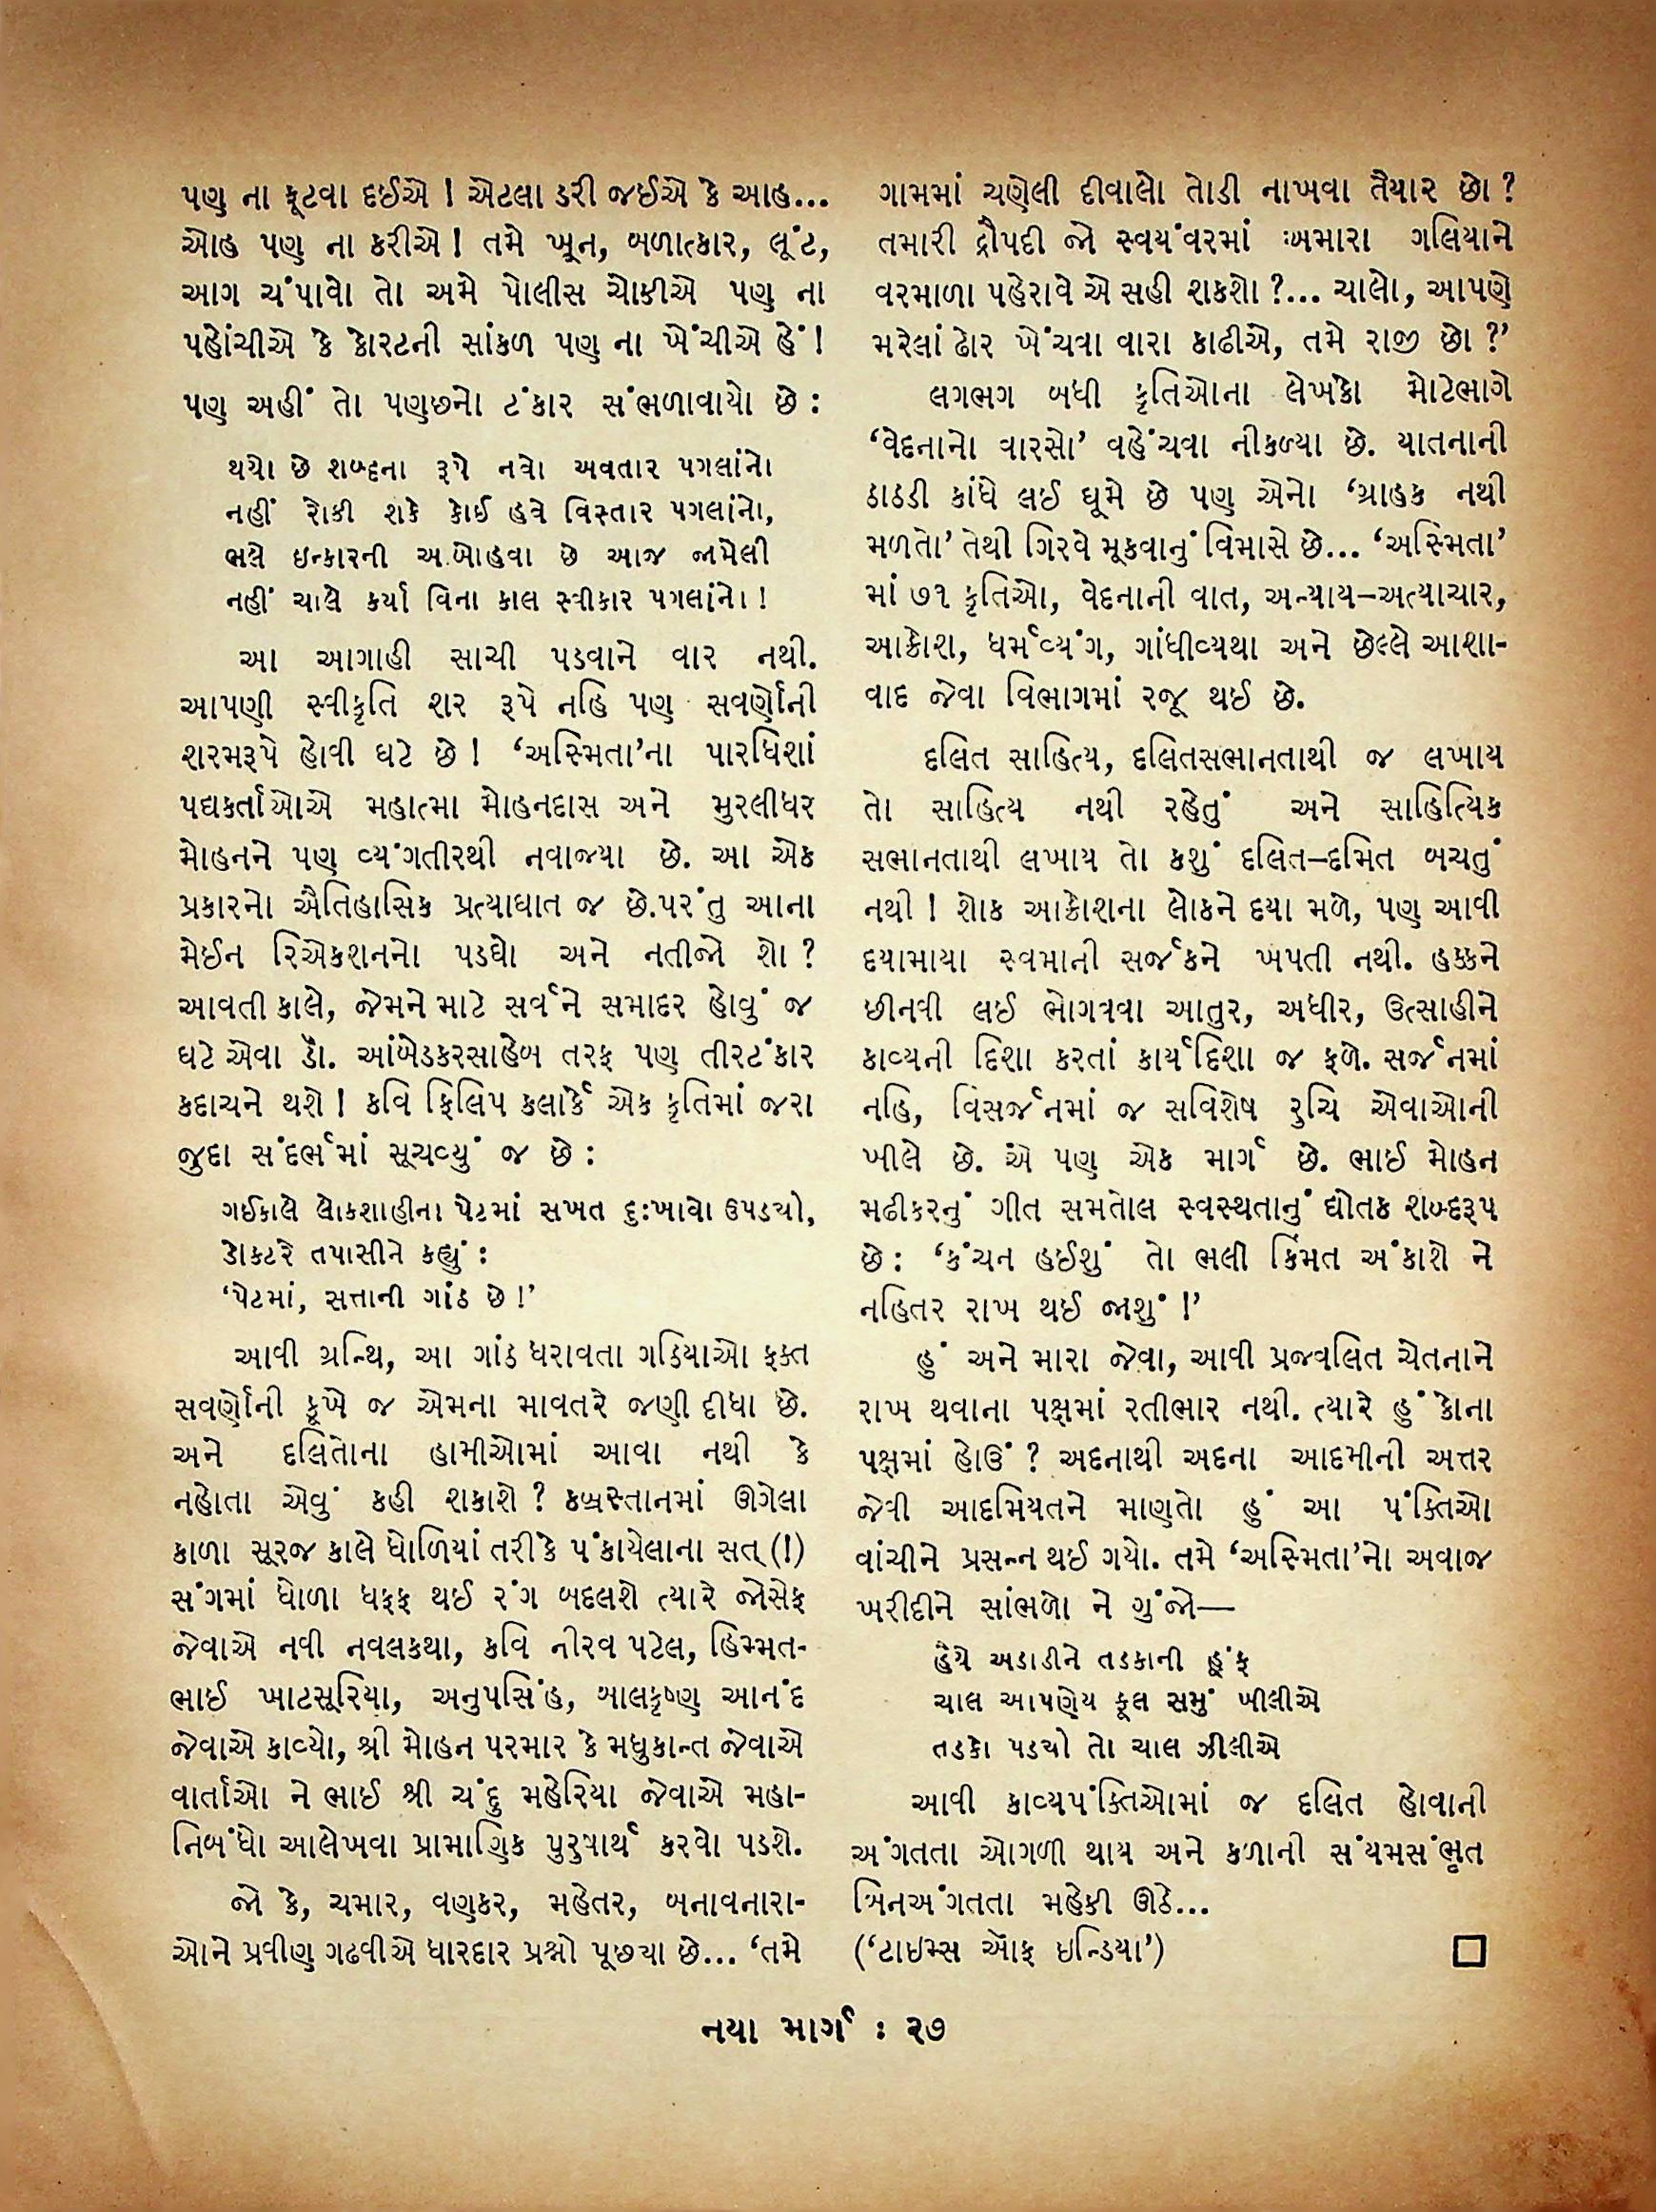 પણ ના ફૂટવા દઈએ ! એટલા ડરી જઈએ કે આહ...
ઓહ પણ ના કરીએ ! તમે ખૂન, બળાત્કાર, લૂંટ,
આગ ચંપાવો તો અમે પોલીસ ચોકીએ પણ ના
પહોંચીએ કે કોરટની સાંકળ પણ ના ખેંચીએ હેં !
પણ અહીં તો પણછનો ટંકાર સંભળાવાયો છે :
થયો છે શબ્દના રૂપે નવો અવતાર પગલાંનો
નહીં રોકી શકે કોઈ હવે વિસ્તાર પગલાંનો,
ભલે ઇન્કારની આબોહવા છે આજ જામેલી
નહીં ચાલે કર્યા વિના કાલ સ્વીકાર પગલાંનો !
આ આગાહી સાચી પડવાને વાર નથી.
આપણી સ્વીકૃતિ શર રૂપે નહિ પણ સવર્ણોની
શરમરૂપે હોવી ઘટે છે ! ‘અસ્મિતા’ના પારધિશાં
પદ્યકર્તાઓએ મહાત્મા મોહનદાસ અને મુરલીધર
મોહનને પણ વ્યંગતીરથી નવાજ્યા છે. આ એક
પ્રકારનો ઐતિહાસિક પ્રત્યાઘાત જ છે.પરંતુ આના
મેઈન રિએકશનનો પડઘો અને નતીજો શો ?
આવતી કાલે, જેમને માટે સર્વને સમાદર હોવું જ
ઘટે એવા ડૉ. આંબેડકરસાહેબ તરફ પણ તીરટંકાર
કદાચને થશે ! કવિ ફિલિપ કલાર્કે એક કૃતિમાં જરા
જુદા સંદર્ભમાં સૂચવ્યું જ છે :
ગઈકાલે લોકશાહીના પેટમાં સખત દુઃખાવો ઉપડયો,
ડોકટરે તપાસીને કહ્યું :
‘પેટમાં, સત્તાની ગાંઠ છે !’
આવી ગ્રન્થિ, આ ગાંઠ ધરાવતા ગઠિયાઓ ફક્ત
સવર્ણોની કૂખે જ એમના માવતરે જણી દીધા છે.
અને દલિતોના હામીઓમાં આવા નથી કે
નહોતા એવું કહી શકાશે ? કબ્રસ્તાનમાં ઊગેલા
કાળા સૂરજ કાલે ધોળિયાં તરીકે પંકાયેલાના સત્ (!)
સંગમાં ધોળા ધફફ થઈ રંગ બદલશે ત્યારે જોસેફ
જેવાએ નવી નવલકથા, કવિ નીરવ પટેલ, હિમ્મત-
ભાઈ ખાટસૂરિયા, અનુપસિંહ, બાલકૃષ્ણ આનંદ
જેવાએ કાવ્યો, શ્રી મોહન પરમાર કે મધુકાન્ત જેવાએ
વાર્તાઓ ને ભાઈ શ્રી ચંદુ મહેરિયા જેવાએ મહા-
નિબંધો આલેખવા પ્રામાણિક પુરુષાર્થ કરવો પડશે.
જો કે, ચમાર, વણકર, મહેતર, બનાવનારા-
ઓને પ્રવીણ ગઢવીએ ધારદાર પ્રશ્નો પૂછયા છે... ‘તમે
ગામમાં ચણેલી દીવાલો તોડી નાખવા તૈયાર છો ?
તમારી દ્રૌપદી જો સ્વયંવરમાં અમારા ગલિયાને
વરમાળા પહેરાવે એ સહી શકશો ?... ચાલો, આપણે
મરેલાં ઢોર ખેંચવા વારા કાઢીએ, તમે રાજી છો ?’
લગભગ બધી કૃતિઓના લેખકો મોટેભાગે
‘વેદનાનો વારસો’ વહેંચવા નીકળ્યા છે. યાતનાની
ઠાઠડી કાંધે લઈ ઘૂમે છે પણ એનો ‘ગ્રાહક નથી
મળતો’ તેથી ગિરવે મૂકવાનું વિમાસે છે... ‘અસ્મિતા’
માં ૭૧ કૃતિઓ, વેદનાની વાત, અન્યાય–અત્યાચાર,
આક્રોશ, ધર્મવ્યંગ, ગાંધીવ્યથા અને છેલ્લે આશા-
વાદ જેવા વિભાગમાં રજૂ થઈ છે.
દલિત સાહિત્ય, દલિતસભાનતાથી જ લખાય
તો સાહિત્ય નથી રહેતું અને સાહિત્યિક
સભાનતાથી લખાય તો કશું દલિત–દમિત બચતું
નથી ! શોક આક્રોશના લોકને દયા મળે, પણ આવી
દયામાયા સ્વમાની સર્જકને ખપતી નથી. હક્કને
છીનવી લઈ ભોગવવા આતુર, અધીર, ઉત્સાહીને
કાવ્યની દિશા કરતાં કાર્યદિશા જ ફળે. સર્જનમાં
નહિ, વિસર્જનમાં જ સવિશેષ રુચિ એવાઓની
ખીલે છે. એ પણ એક માર્ગ છે. ભાઈ મોહન
મઢીકરનું ગીત સમતોલ સ્વસ્થતાનું દ્યોતક શબ્દરૂપ
છે : ‘કંચન હઈશું તો ભલી કિંમત અંકાશે ને
નહિતર રાખ થઈ જાશું !’
હું અને મારા જેવા, આવી પ્રજવલિત ચેતનાને
રાખ થવાના પક્ષમાં રતીભાર નથી. ત્યારે હું કોના
પક્ષમાં હોઉં ? અદનાથી અદના આદમીની અત્તર
જેવી આદમિયતને માણતો હું આ પંક્તિઓ
વાંચીને પ્રસન્ન થઈ ગયો. તમે ‘અસ્મિતા’નો અવાજ
ખરીદીને સાંભળો ને ગુંજો—
હૈયે અડાડીને તડકાની હૂંફ
ચાલ આપણેય ફૂલ સમું ખીલીએ
તડકો પડયો તો ચાલ ઝીલીએ
આવી કાવ્યપંક્તિઓમાં જ દલિત હોવાની
અંગતતા ઓગળી થાય અને કળાની સંયમસંભૃત
બિનઅંગતતા મહેકી ઊઠે...
(‘ટાઇમ્સ ઑફ ઇન્ડિયા’)
નયા માર્ગ : ૨૭